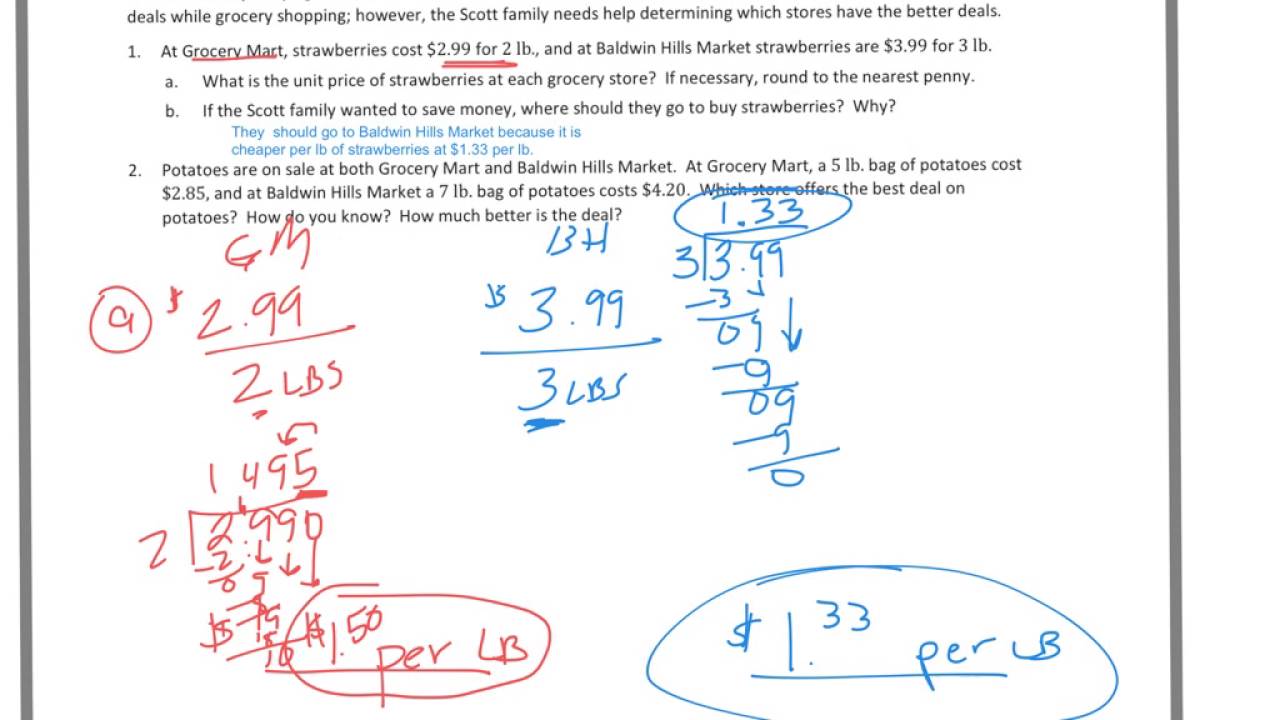 deals while grocery shopping; however, the Scott family needs help determining which stores have the better deals.
1. At Grocery Mart, strawberries cost $2.99 for 2 lb., and at Baldwin Hills Market strawberries are $3.99 for 3 lb.
a. What is the unit price of strawberries at each grocery store? If necessary, round to the nearest penny.
b. If the Scott family wanted to save money, where should they go to buy strawberries? Why?
They should go to Baldwin Hills Market because it is
cheaper per lb of strawberries at $1.33 per lb.
2. Potatoes are on sale at both Grocery Mart and Baldwin Hills Market. At Grocery Mart, a 5 lb. bag of potatoes cost
$2.85, and at Baldwin Hills Market a 7 lb. bag of potatoes costs $4.20. Which store offers the best deal on
potatoes? How do you know? How much better is the deal?
GM
a $2.99
2 LBS
1 495
2 2.990
-2
09
$1.50 per LB
BH
$3.99
3 LBS
1.33
3 3.99
-3
09
-9
09
-9
0
$1.33 per LB